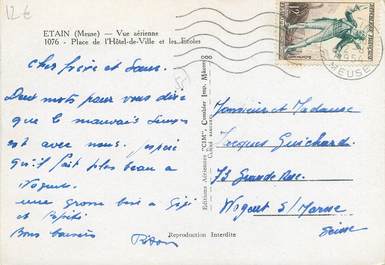 12 €
ETAIN (Meuse) — Vue aérienne
1076 - Place de l'Hôtel-de-Ville et les Ecoles
Cher frère et Sœur.
Deux mots pour vous dire
que le mauvais temps
est avec nous. espère
qu'il fait plus beau a
Nogent.
une grosse bise a Gigi
et
Bons baisers
Editions Aériennes "CIM", Combier Imp. Mâcon
Reproduction Interdite
12F
MEUSE
Monsieur et Madame
Jacques Guichard
73 Grande Rue
Nogent S/ Marne
Seine